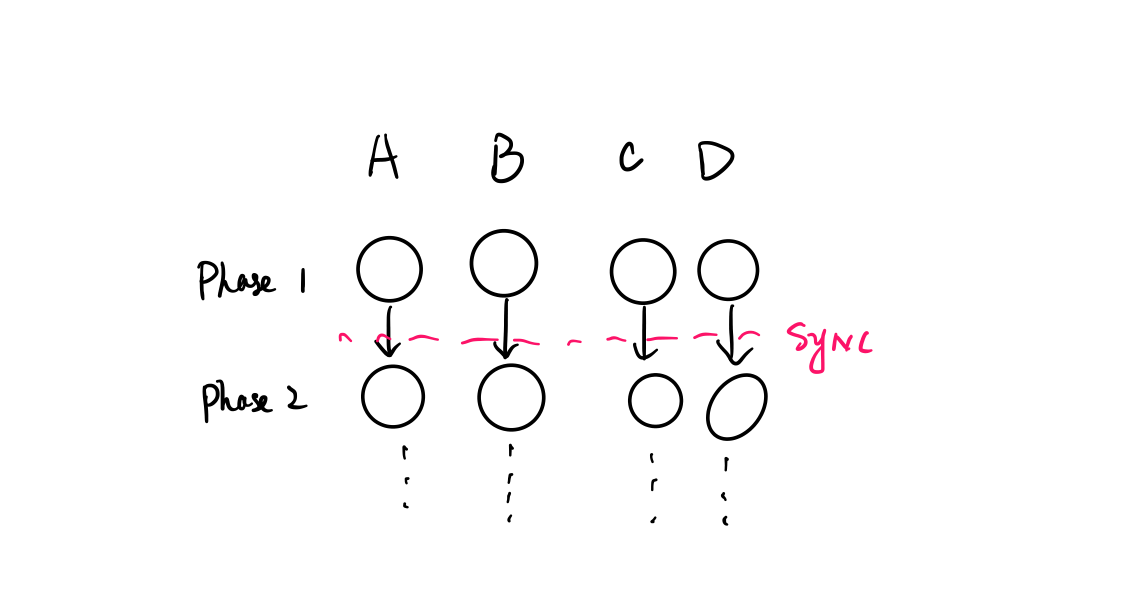 A B C D
Phase 1
SYNC
Phase 2